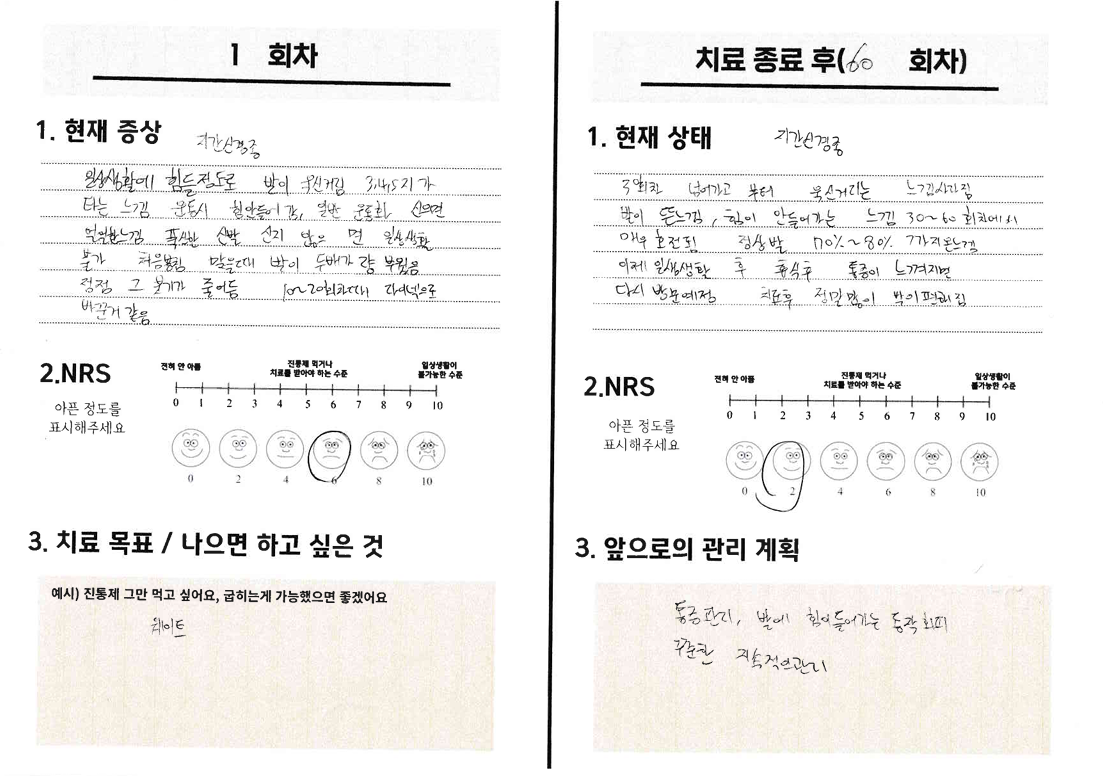 1 회차
1. 현재 증상
지간신경종
일상생활에 힘들정도로 발이 욱신거림 3,4,5지가
타는 느낌 운동시 힘안들어감, 일반 운동화 신으면
얼얼한느낌 푹신한 신발 신지 않으면 일상생활
불가 처음붓침 맞을때 발이 두배가량 부웠음
점점 그 붓기가 줄어듬 10~20회차때 간헐적으로
바뀐거 같음
2.NRS
아픈 정도를
표시해주세요
전혀 안 아픔
진통제 먹거나
치료를 받아야 하는 수준
일상생활이
불가능한 수준
0 1 2 3 4 5 6 7 8 9 10
0 2 4 6 8 10
3. 치료 목표 / 나으면 하고 싶은 것
예시) 진통제 그만 먹고 싶어요, 굽히는게 가능했으면 좋겠어요
웨이트
치료 종료 후(60 회차)
1. 현재 상태
지간신경종
3회차 넘어가고 부터 욱신거리는 느낌사라짐
발이 뜬느낌, 힘이 안들어가는 느낌 30~60회차에서
매우 호전됨 정상발 70%~80% 가까지온느낌
이제 일상생활 후 휴식후 통증이 느껴지면
다시 방문예정 치료후 정말 많이 발이편해짐
2.NRS
아픈 정도를
표시해주세요
전혀 안 아픔
진통제 먹거나
치료를 받아야 하는 수준
일상생활이
불가능한 수준
0 1 2 3 4 5 6 7 8 9 10
0 2 4 6 8 10
3. 앞으로의 관리 계획
통증관리, 발에 힘이들어가는 동작 회피
꾸준한 지속적인관리